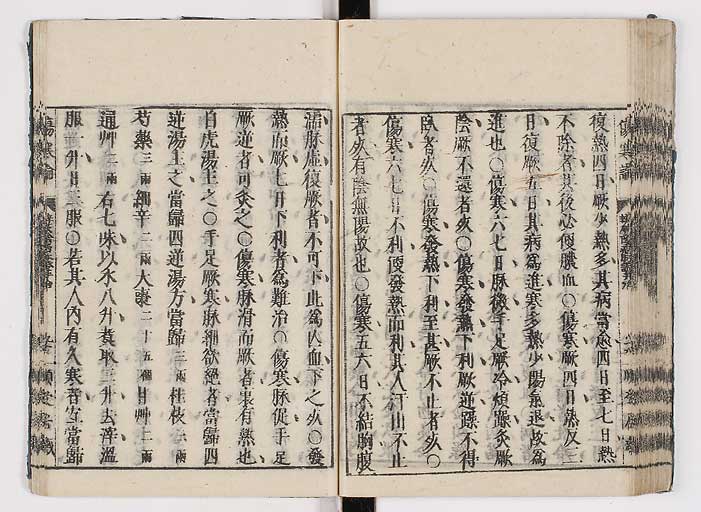 復熱四日厥少熱多其病當愈四日至七日熱
不除者其後必便膿血○傷寒厥四日熱反三
日復厥五日其病爲進寒多熱少陽氣退故爲
進也○傷寒六七日脉微手足厥冷煩躁灸厥
陰厥不還者死○傷寒發熱下利厥逆躁不得
臥者死○傷寒發熱下利至甚厥不止者死○
傷寒六七日不利便發熱而利其人汗出不止
者死有陰無陽故也○傷寒五六日不結胸腹
濡脉虛復厥者不可下此爲亡血下之死○發
熱而厥七日下利者爲難治○傷寒脉促手足
厥逆者可灸之○傷寒脉滑而厥者裏有熱也
白虎湯主之○手足厥寒脉細欲絕者當歸四
逆湯主之當歸四逆湯方當歸三兩桂枝三兩
芍藥三兩細辛二兩大棗二十五個甘艸二兩
通艸二兩右七味以水八升煑取三升去滓溫
服一升日三服○若其人內有久寒者宜當歸
傷寒論